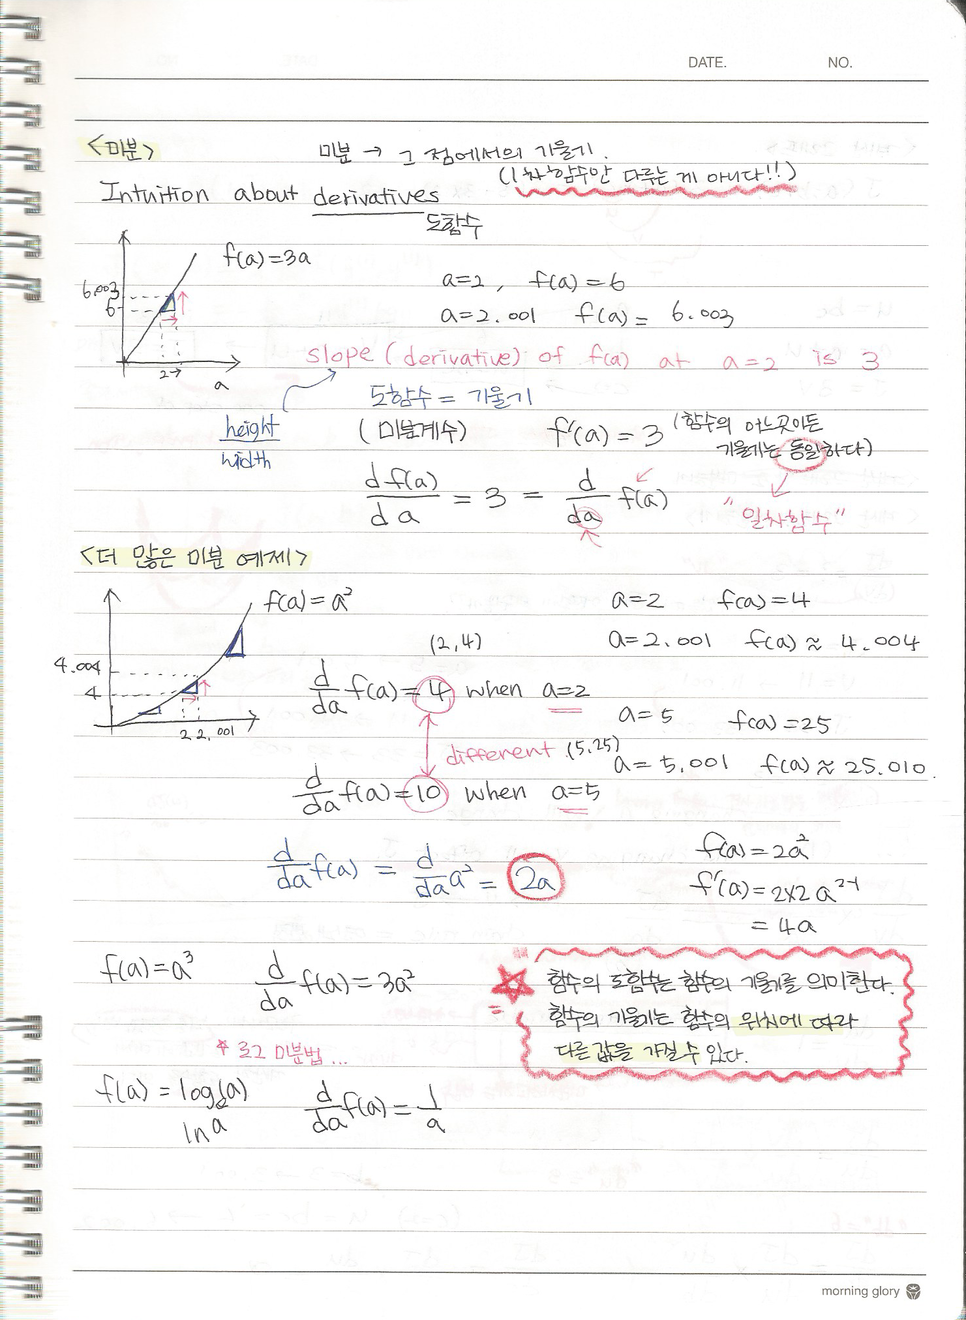 DATE. NO.
<미분>
미분 → 그 점에서의 기울기.
(1차함수만 다루는 게 아니다!!)
Intuition about derivatives
도함수
f(a)=3a
6.003
6
2→
a
a=2, f(a)=6
a=2.001 f(a)= 6.003
slope (derivative) of f(a) at a=2 is 3
height
width
도함수 = 기울기
(미분계수) f'(a) = 3 (함수의 어느곳이든
기울기는 동일하다)
d f(a)/d a = 3 = d/da f(a)
"일차함수"
<더 많은 미분 예제>
f(a)=a²
4.004
4
2 2.001
a=2 f(a)=4
a=2.001 f(a)≈ 4.004
(2,4)
d/da f(a)=4 when a=2
a=5 f(a)=25
different (5,25)
a=5.001 f(a)≈25.010.
d/da f(a)=10 when a=5
d/da f(a) = d/da a² = 2a
f(a)=2a²
f'(a)=2×2a²⁻¹
= 4a
f(a)=a³ d/da f(a)=3a²
☆ 함수의 도함수는 함수의 기울기를 의미한다.
함수의 기울기는 함수의 위치에 따라
다른 값을 가질 수 있다.
* 로그 미분법 ...
f(a) = logₑ(a) d/da f(a) = 1/a
ln a
morning glory